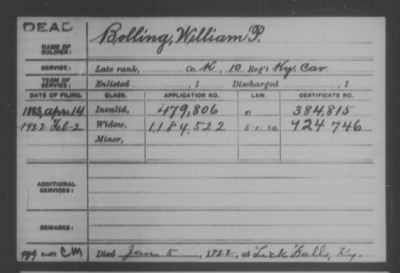 DEAD
Bolling, William P.
NAME OF SOLDIER:
SERVICE: Late rank, Co. K, 10 Reg't Ky. Cav.
TERM OF SERVICE: Enlisted , 1 Discharged , 1
DATE OF FILING. CLASS. APPLICATION NO. LAW. CERTIFICATE NO.
1883, Apr. 14 Invalid, 479,806 384,815
1922 Feb-2 Widow, 1,184,522 5-1-20 924746
Minor,
ADDITIONAL SERVICES:
REMARKS:
CM Died Jan 5, 1922, at Lick Falls, Ky.